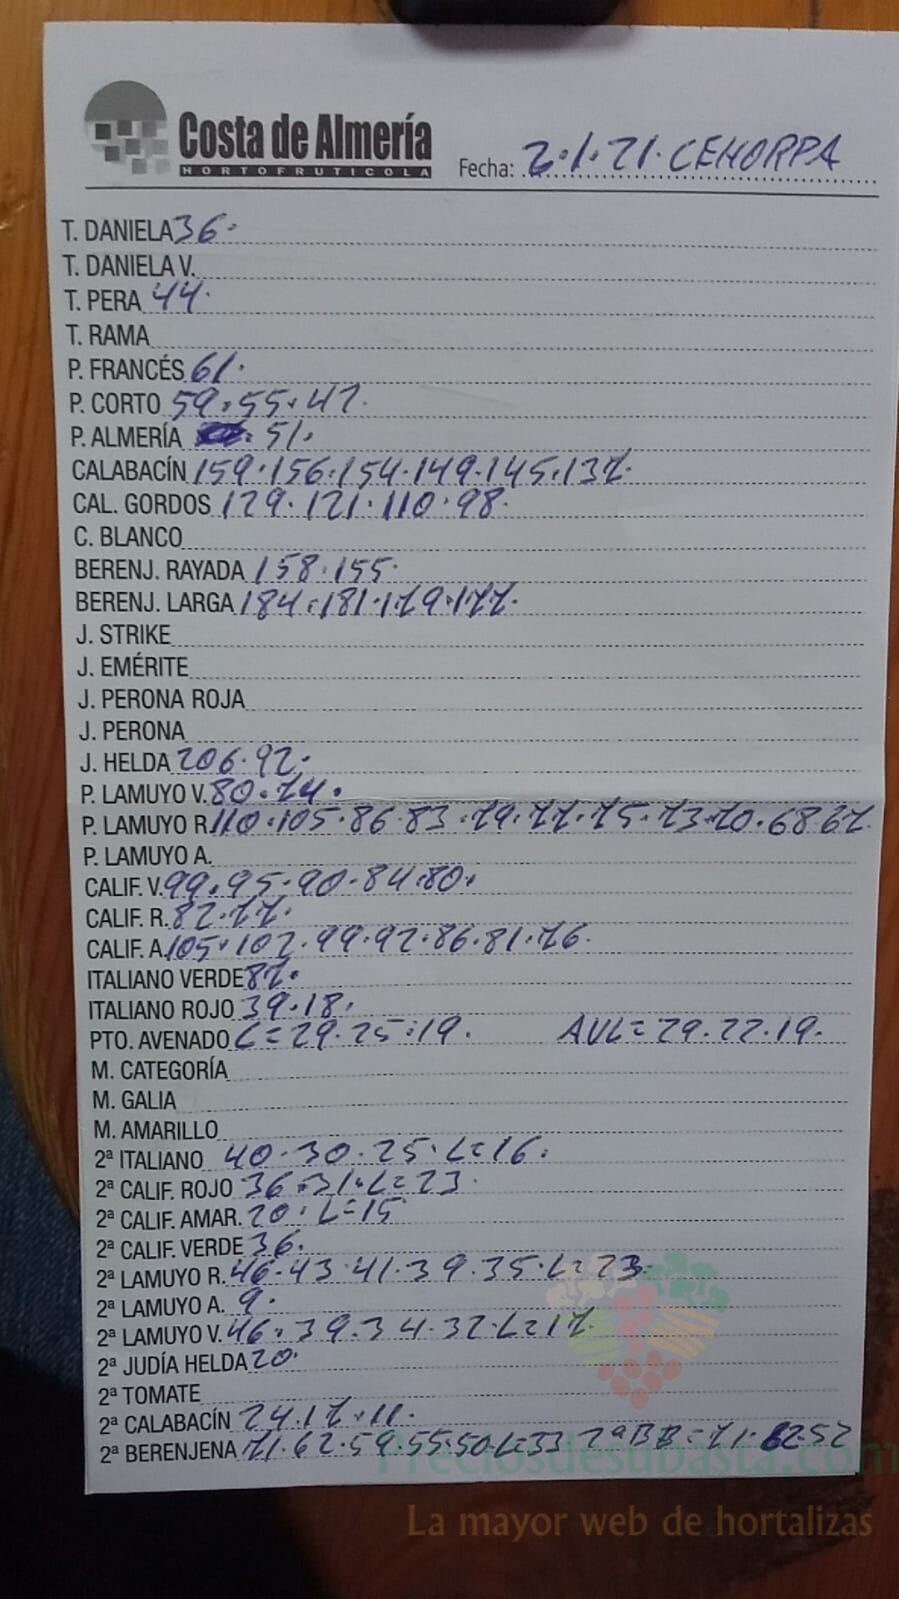 Costa de Almería
HORTOFRUTICOLA
Fecha: 2.1.21. CEHORPA
T. DANIELA 36.
T. DANIELA V.
T. PERA 44.
T. RAMA
P. FRANCÉS 61.
P. CORTO 59.55.47.
P. ALMERÍA 51.
CALABACÍN 159.156.154.149.145.137.
CAL. GORDOS 129.121.110.98.
C. BLANCO
BERENJ. RAYADA 158.155.
BERENJ. LARGA 184.181.179.177.
J. STRIKE
J. EMÉRITE
J. PERONA ROJA
J. PERONA
J. HELDA 206.92.
P. LAMUYO V. 80.74.
P. LAMUYO R. 110.105.86.83.79.77.75.73.70.68 67.
P. LAMUYO A.
CALIF. V. 99.95.90.84.80.
CALIF. R. 82.77.
CALIF. A. 105.102.99.92.86.81.76.
ITALIANO VERDE 87.
ITALIANO ROJO 39.18.
PTO. AVENADO L=29.25.19. AVL=29.22.19.
M. CATEGORÍA
M. GALIA
M. AMARILLO
2ª ITALIANO 40.30.25.L=16.
2ª CALIF. ROJO 36.31.L=23.
2ª CALIF. AMAR. 20.L=15
2ª CALIF. VERDE 36.
2ª LAMUYO R. 46.43.41.39.35.L=23.
2ª LAMUYO A. 9.
2ª LAMUYO V. 46.39.34.32.L=17.
2ª JUDÍA HELDA 20.
2ª TOMATE
2ª CALABACÍN 24.17.11.
2ª BERENJENA 71.62.59.55.50.L=33 2ªBB=71.62.52
Preciosdesubasta.com
La mayor web de hortalizas